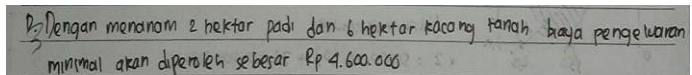 D) Dengan menanam 2 hektar padi dan 6 hektar kacang tanah biaya pengeluaran
minimal akan diperoleh sebesar Rp 4.600.000